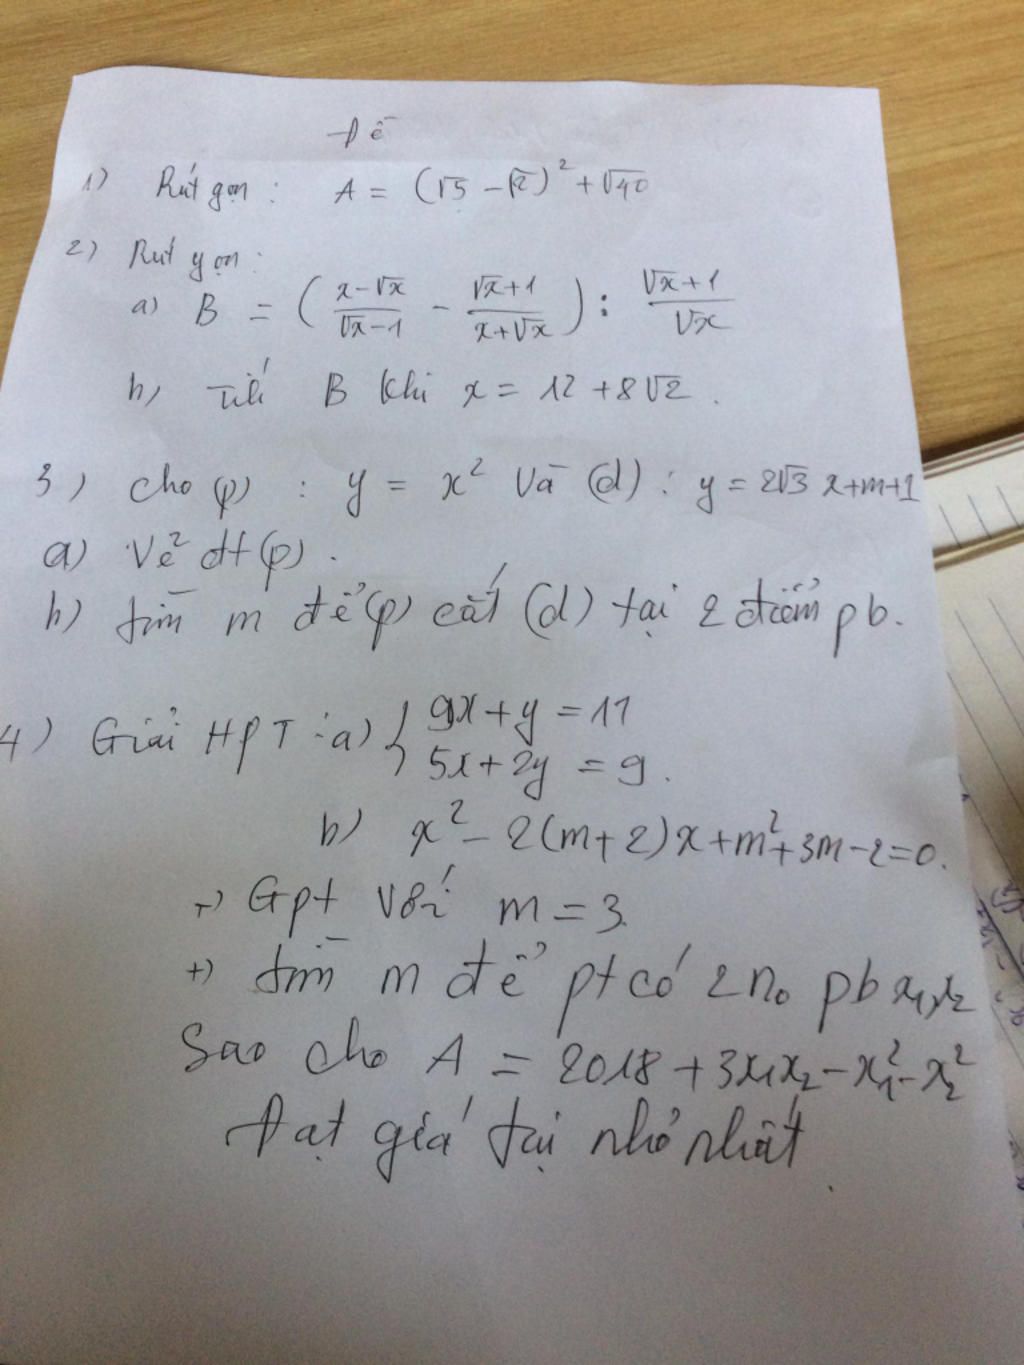 Đề
1) Rút gọn: A = (√5 - √2)² + √40
2) Rút gọn:
a) B = ((x-√x)/(√x-1) - (√x+1)/(x+√x)) : (√x+1)/√x
b) B khi x = 12 + 8√2.
3) cho (p) : y = x² và (d) : y = 2√3 x+m+1
a) Vẽ đt (p).
b) tìm m để (p) cắt (d) tại 2 điểm pb.
4) Giải HPT : a) { 9x + y = 11
5x + 2y = 9.
b) x² - 2(m+2)x + m² + 3m - 2 = 0.
+) Gpt với m = 3.
+) tìm m để pt có 2 n₀ pb x₁, x₂
Sao cho A = 2018 + 3x₁x₂ - x₁² - x₂²
Đạt giá tại nhỏ nhất.